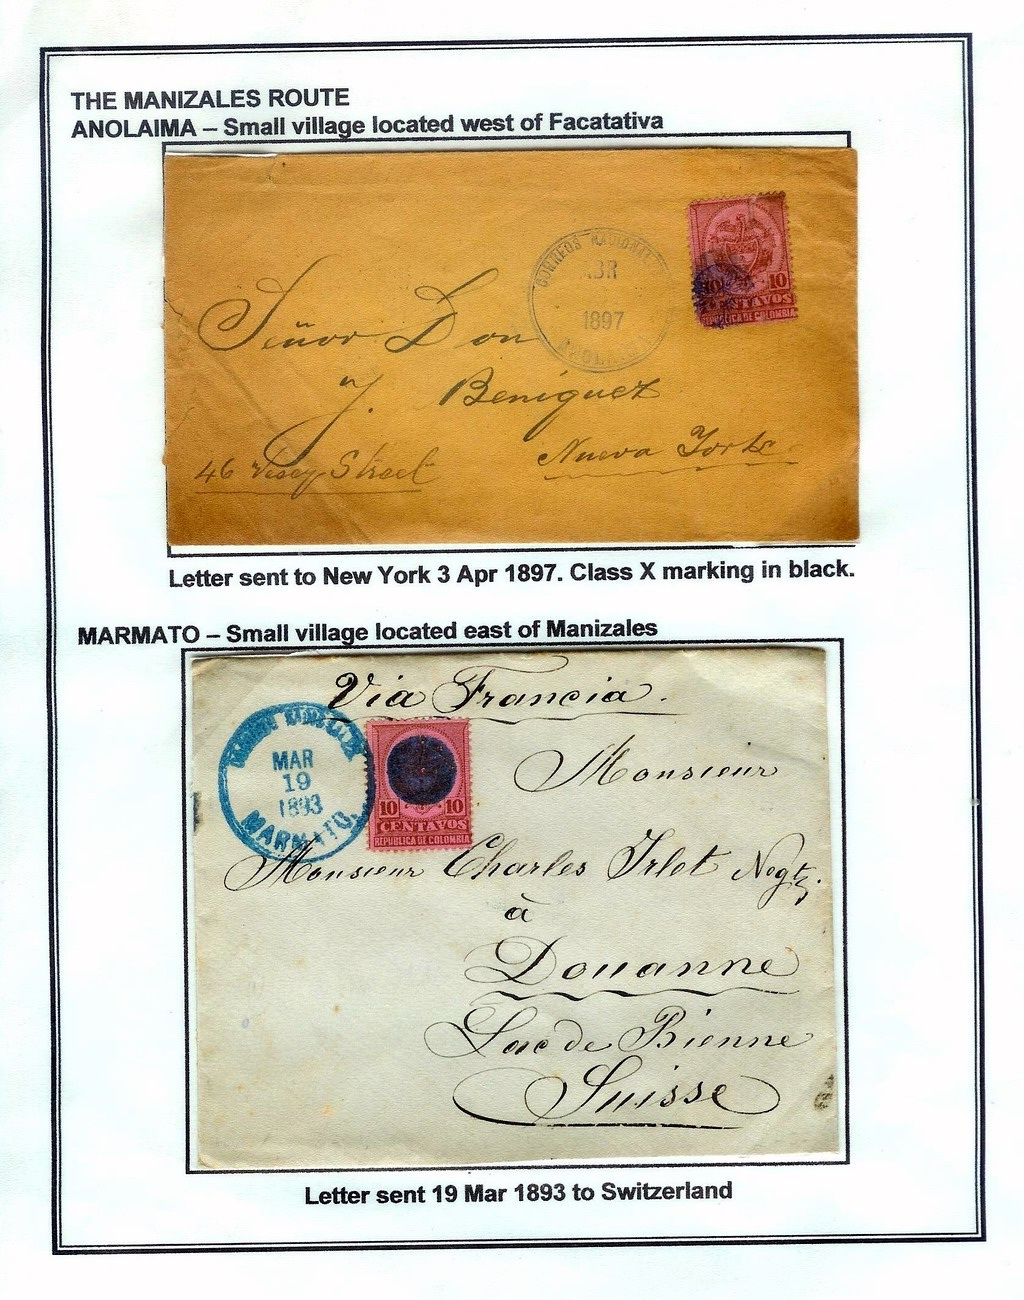 THE MANIZALES ROUTE
ANOLAIMA – Small village located west of Facatativa
CORREOS NACIONAL
ABR
1897
10
CENTAVOS
REPUBLICA DE COLOMBIA
Señor Don
J. Beniquez
46 Vesey Street
Nueva York
Letter sent to New York 3 Apr 1897. Class X marking in black.
MARMATO – Small village located east of Manizales
Via Francia.
MAR
19
1893
MARMATO
10 10
CENTAVOS
REPUBLICA DE COLOMBIA
Monsieur
Monsieur Charles Irlet Negt
à
Douanne
Lac de Bienne
Suisse
Letter sent 19 Mar 1893 to Switzerland